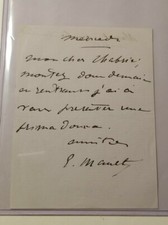 mercredi
mon cher Chabrier
montez donc demain
en rentrant j'ai à
vous présenter une
prima donna.
amitiés
E. Manet